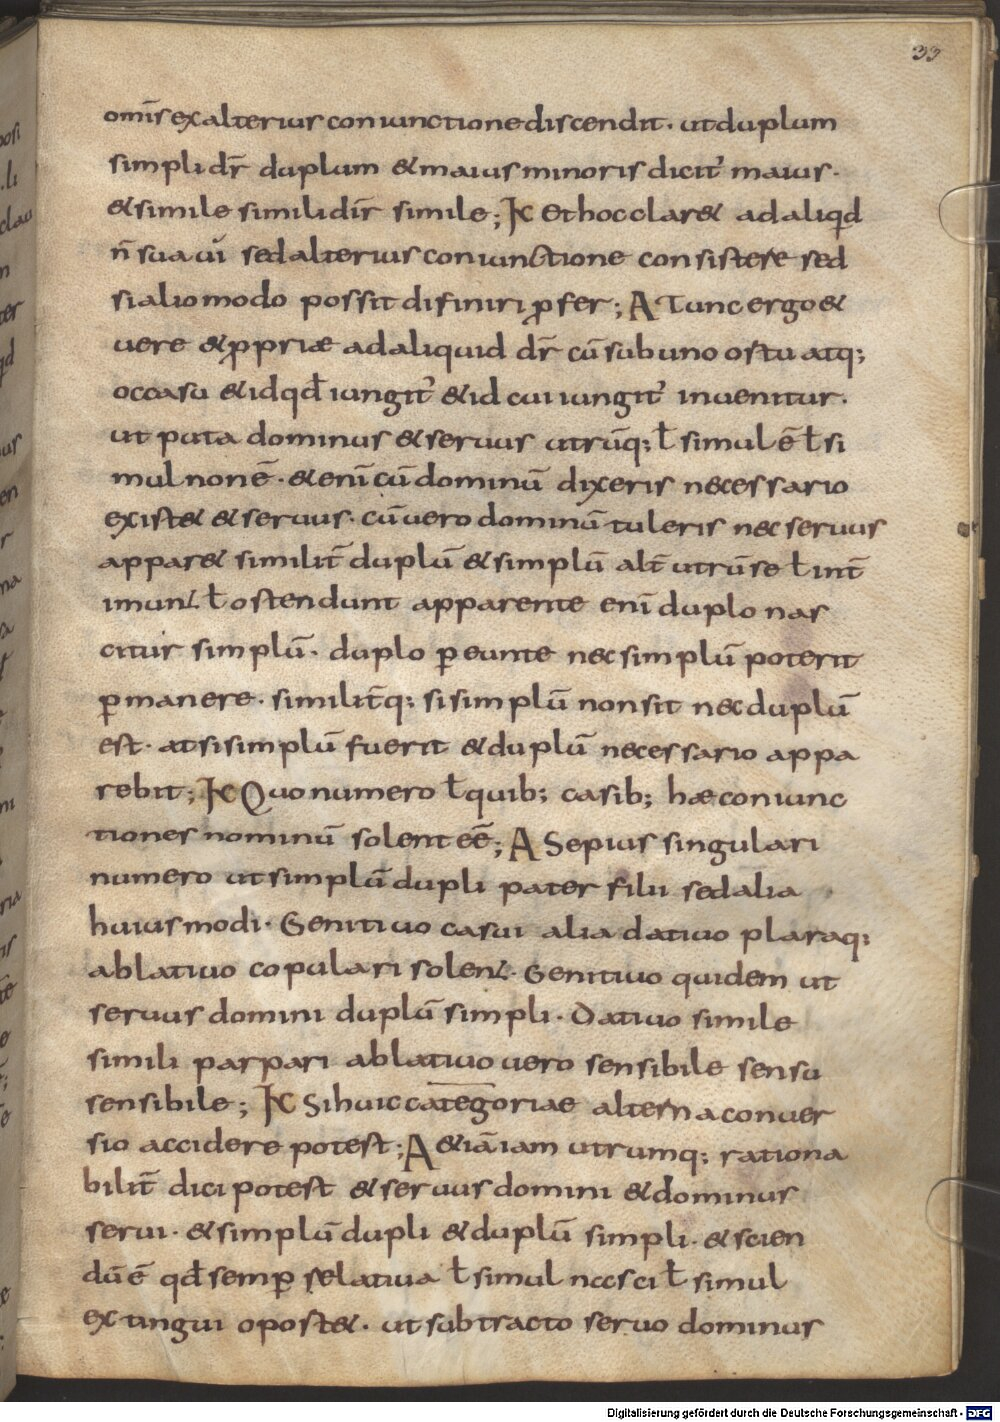 33
om̄is ex alterius coniunctione discendit· ut duplum
simpli dr̄ duplum & maius minoris dicit᷑ maius·
& simile simili dir̄ simile; K et hoc clar& ad aliqđ
n̄ sua ui sed alterius coniunctione consistere sed
si alio modo possit difiniri ꝓfer; A Tunc ergo &
uere & ꝓpriæ ad aliquid dr̄ cū sub uno ostu atq;
occasu & id qđ iungit᷑ & id cui iungit᷑ inuenitur·
ut puta dominus & seruus utrūq; ł simul ē ł si
mul non ē· & enī cū dominū dixeris necessario
exist& & seruus· cū uero dominū tuleris nec seruus
appar& similit̄ duplū & simplū alt̄ utrū se ł int̄
imunt ł ostendunt apparente enī duplo nas
citur simplū· duplo ꝑeunte nec simplū poterit
ꝑmanere· similit̄q; si simplū non sit nec duplū
est· at si simplū fuerit & duplū necessario appa
rebit; K Quo numero ł quib; casib; hæ coniunc
tiones nominū solent eē; A Sepius singulari
numero ut simplū dupli pater filii sed alia
huiusmodi· Genitiuo casui alia datiuo pleraq;
ablatiuo copulari solent· Genitiuo quidem ut
seruus domini duplū simpli· Datiuo simile
simili par pari ablatiuo uero sensibile sensu
sensibile; K Si huic categoriae alterna conuer
sio accidere potest; A & iā iam utrumq; rationa
bilit̄ dici potest & seruus domini & dominus
serui· & simplū dupli & duplū simpli· & scien
dū ē qđ semꝑ relatiua ł simul nocsci ł simul
extingui oport&· ut subtracto seruo dominus
Digitalisierung gefördert durch die Deutsche Forschungsgemeinschaft - DFG